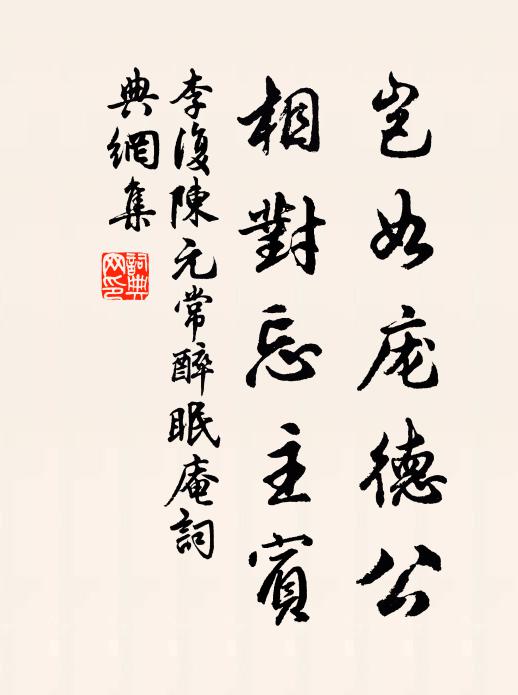 岂如庞德公
相對忘主賓
李復陳元常醉眠庵詞
典網集
詞典网印